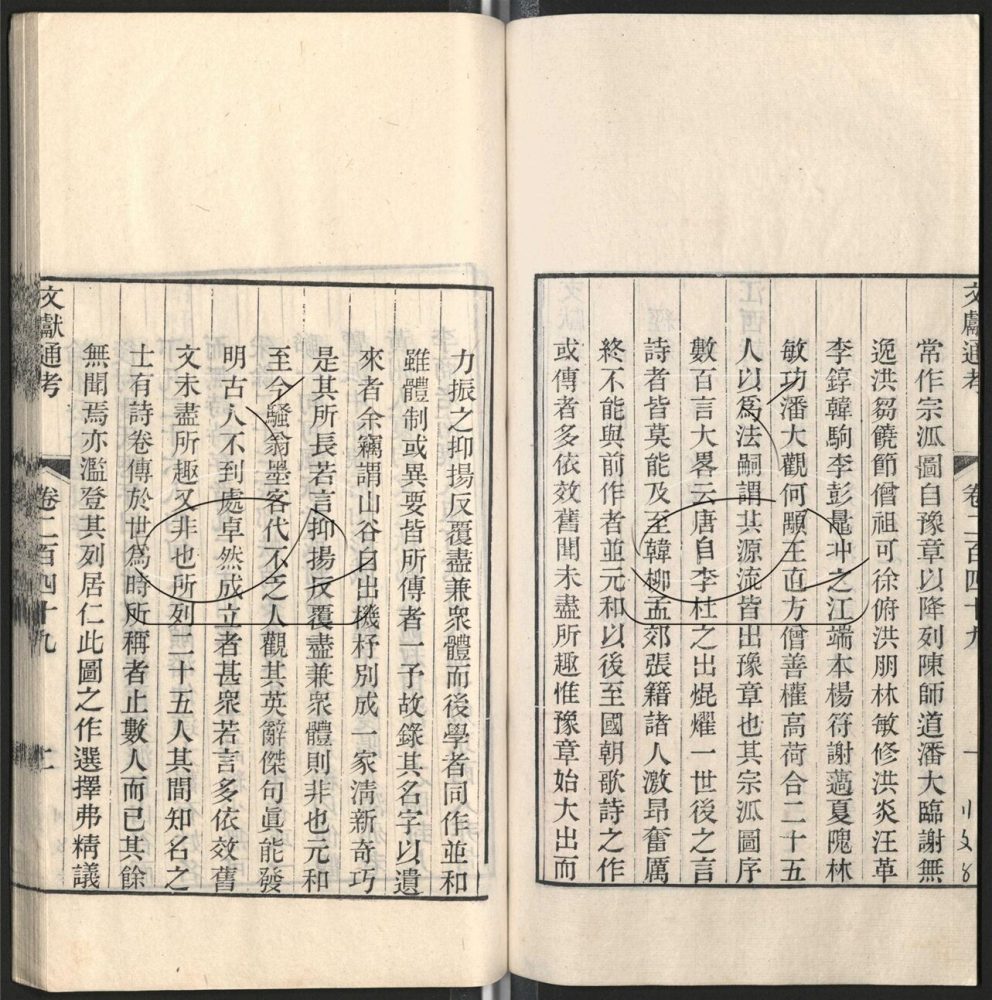 文獻通考 卷二百四十九
常作宗派圖自豫章以降列陳師道潘大臨謝無
逸洪芻饒節僧祖可徐俯洪朋林敏修洪炎汪革
李錞韓駒李彭晁冲之江端本楊符謝薖夏隗林
敏功潘大觀何顒王直方僧善權高荷合二十五
人以爲法嗣謂其源流皆出豫章也其宗派圖序
數百言大畧云唐自李杜之出焜燿一世後之言
詩者皆莫能及至韓柳孟郊張籍諸人激昂奮厲
終不能與前作者並元和以後至國朝歌詩之作
或傳者多依效舊聞未盡所趣惟豫章始大出而
力振之抑揚反覆盡兼衆體而後學者同作並和
雖體制或異要皆所傳者一予故錄其名字以遺
來者余竊謂山谷自出機杼別成一家淸新奇巧
是其所長若言抑揚反覆盡兼衆體則非也元和
至今騷翁墨客代不乏人觀其英辭傑句眞能發
明古人不到處卓然成立者甚衆若言多依效舊
文未盡所趣又非也所列二十五人其間知名之
士有詩卷傳於世爲時所稱者止數人而已其餘
無聞焉亦濫登其列居仁此圖之作選擇弗精議
文獻通考 卷二百四十九